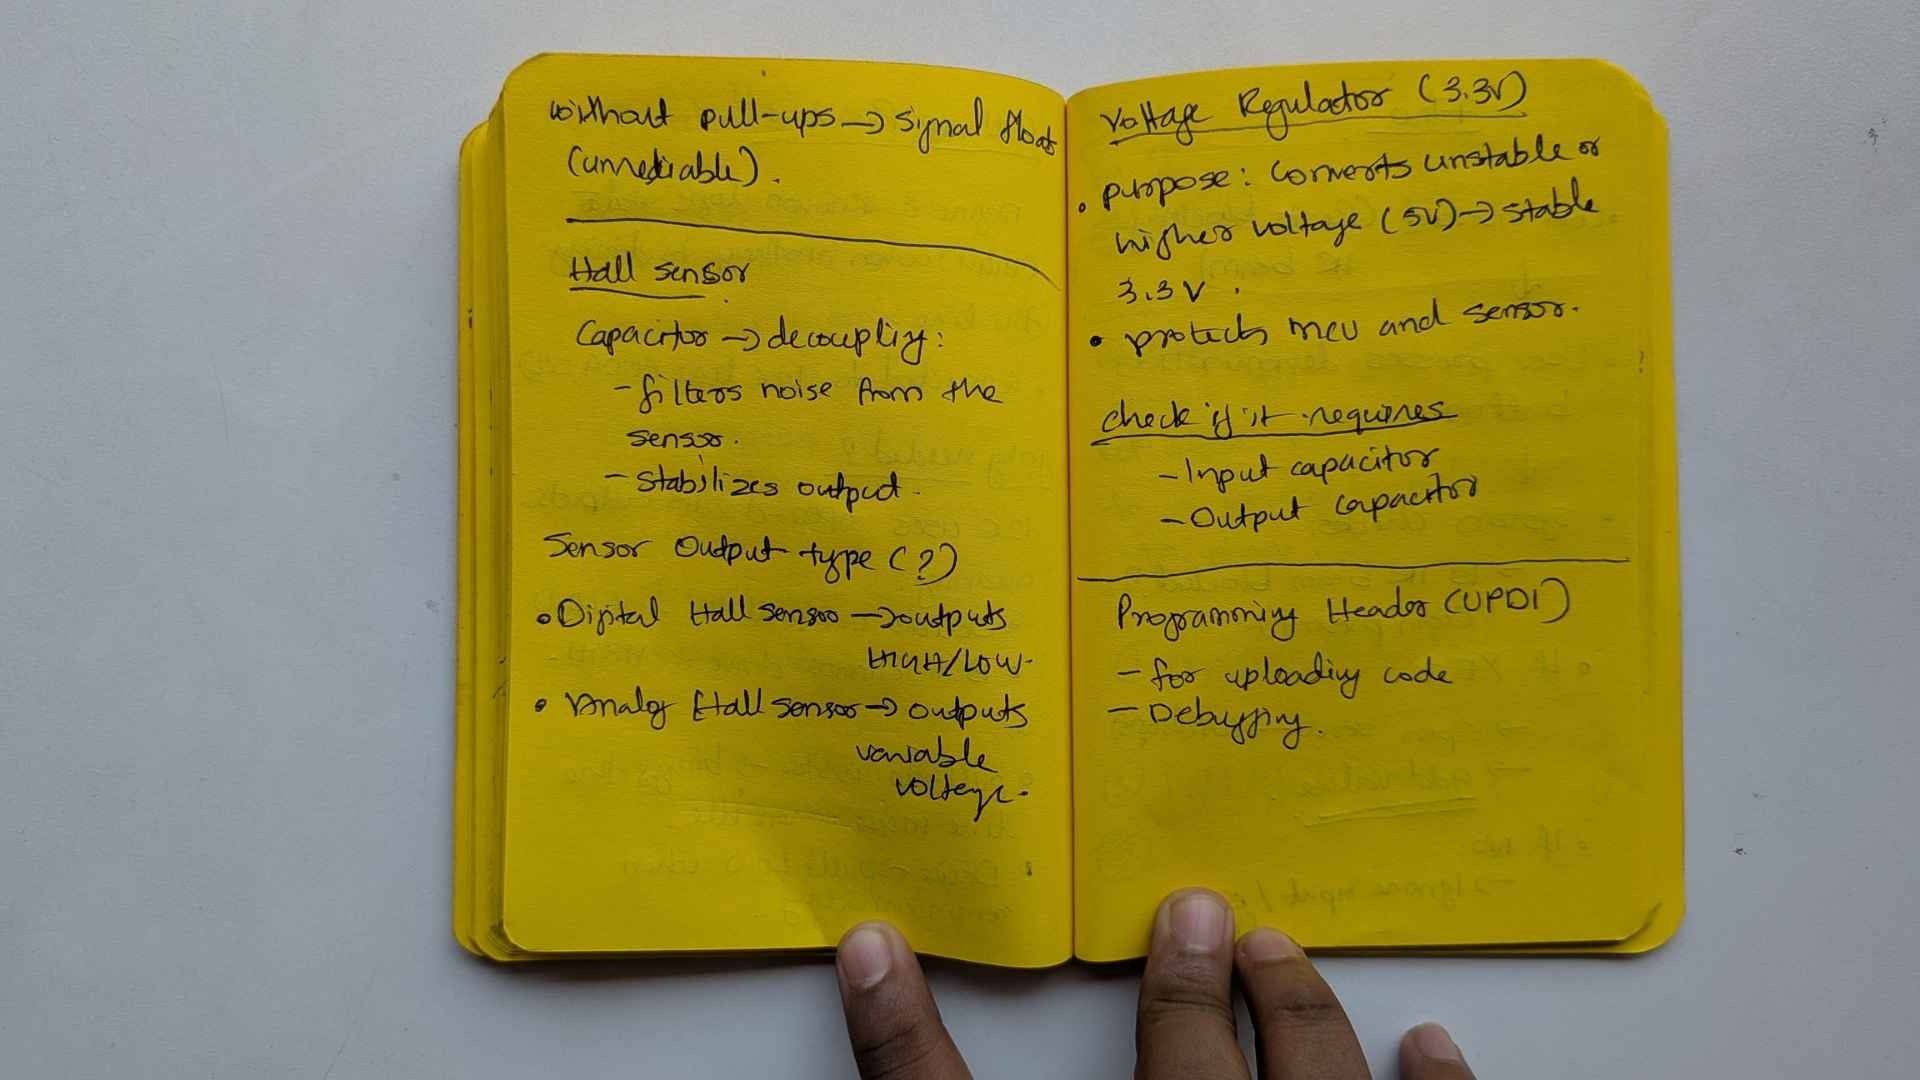 without pull-ups → signal floats
(unreliable).
Hall sensor
Capacitor → decoupling:
- filters noise from the
sensor.
- Stabilizes output.
Sensor Output type (?)
• Digital Hall sensor → outputs
HIGH/LOW.
• Analog Hall sensor → outputs
variable
voltage.
Voltage Regulator (3.3V)
• purpose: Converts unstable or
higher voltage (5V) → stable
3.3V.
• protects MCU and sensor.
check if it requires
- Input capacitor
- Output capacitor
Programming Header (UPDI)
- for uploading code
- Debugging.